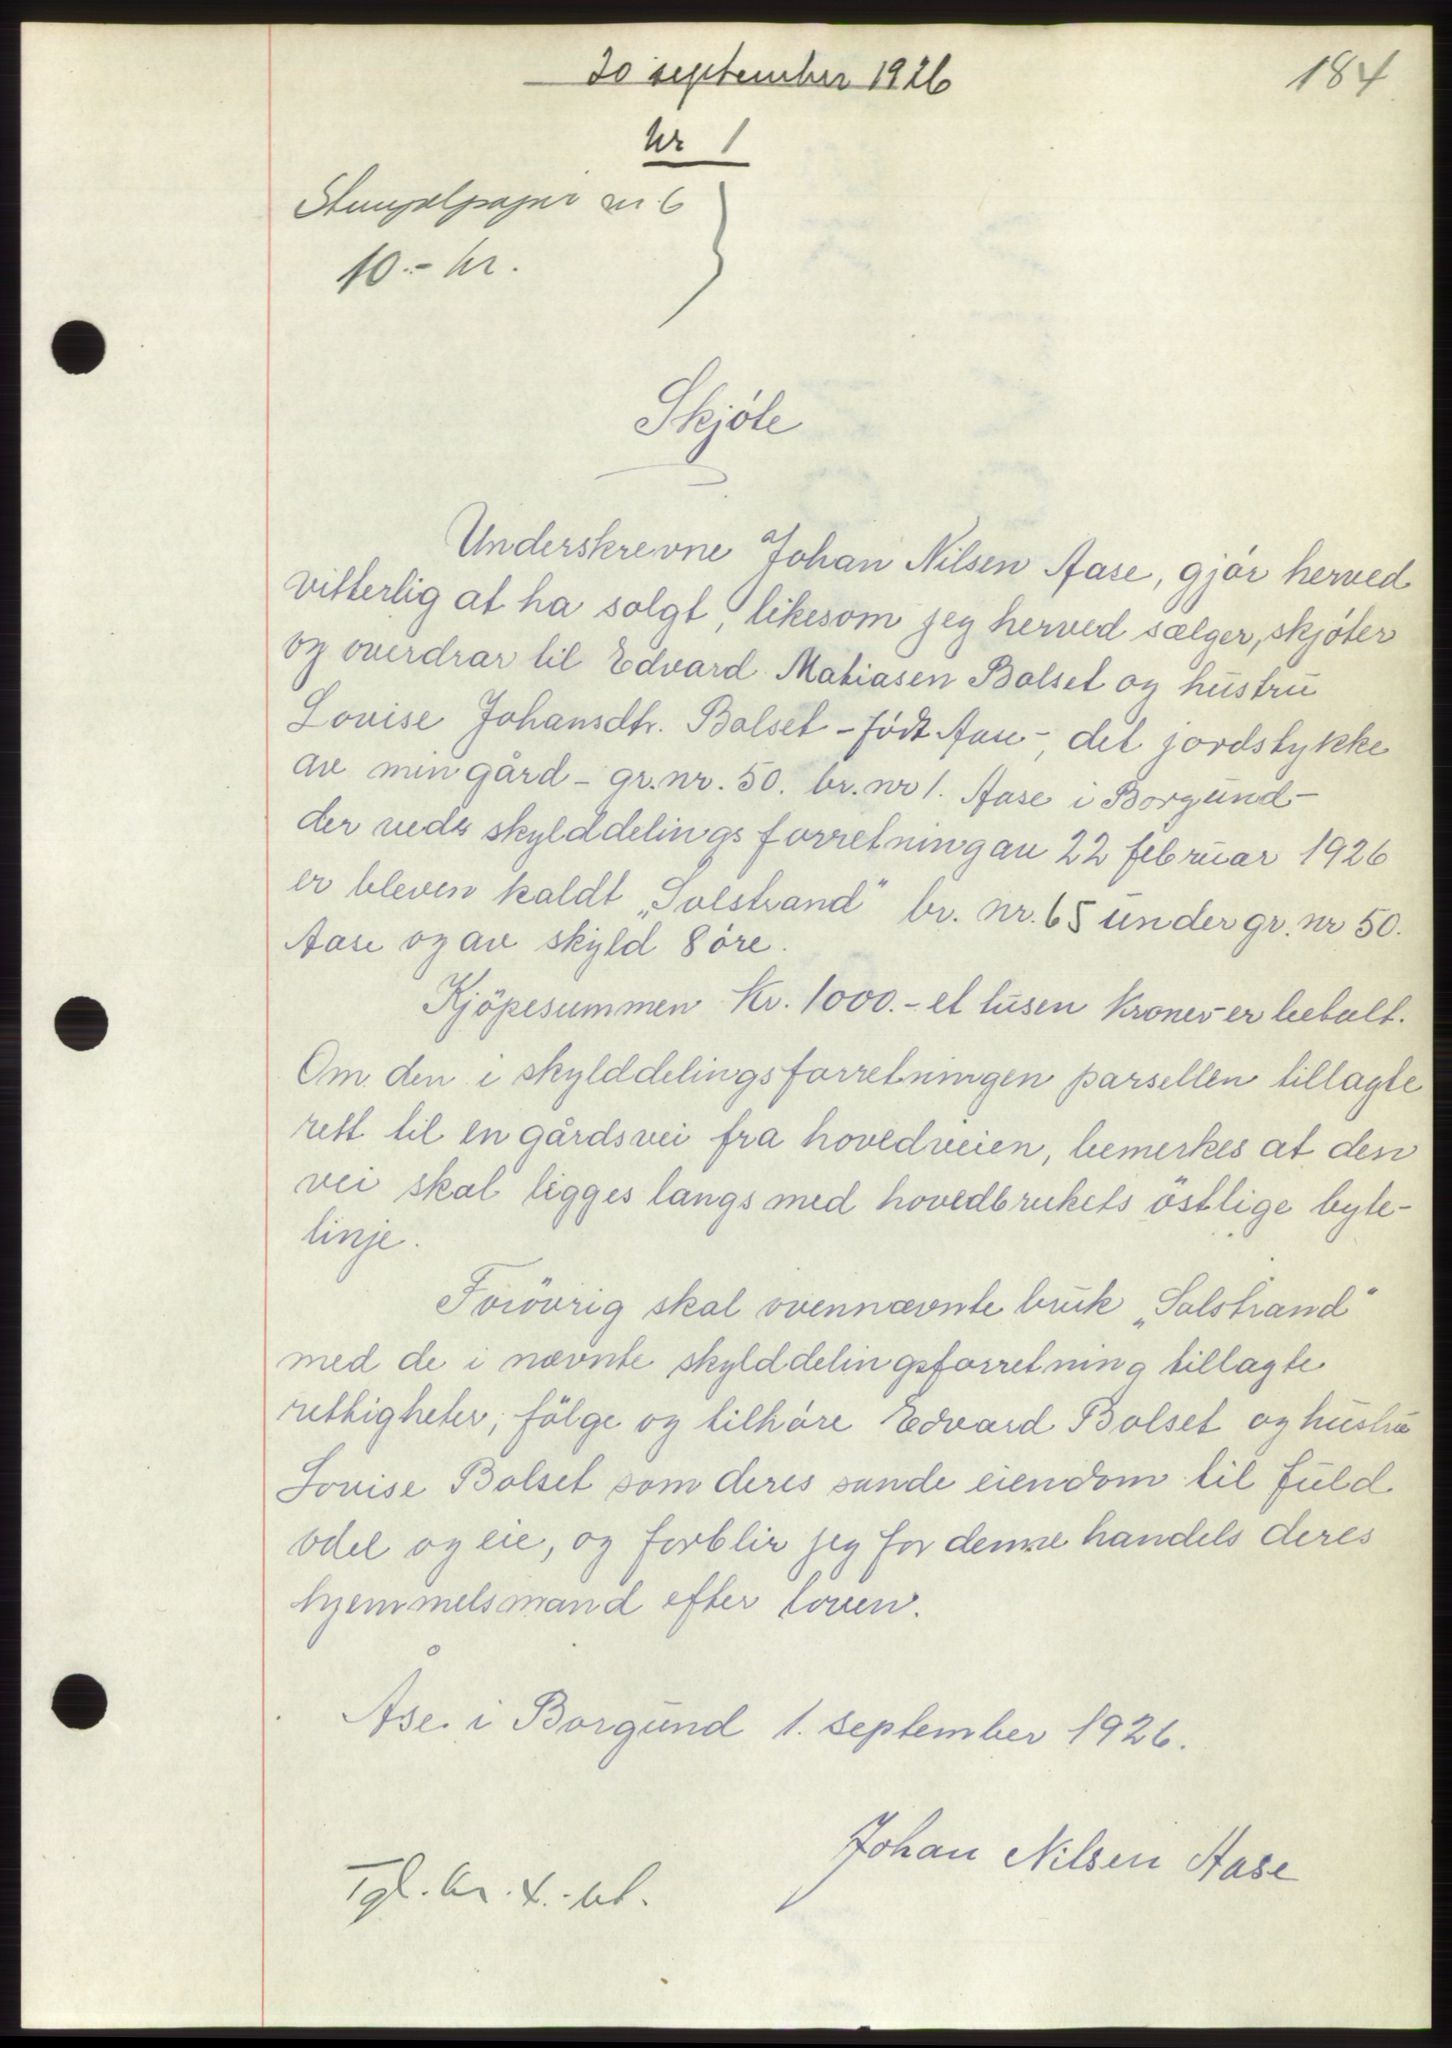 20 september 1926
184
Nr 1
Stempelpapir nr. 6
10.- kr.
Skjøte
Underskrevne Johan Nilsen Aase, gjør herved
vitterlig at ha solgt, likesom jeg herved sælger, skjøter
og overdrar til Edvard Matiasen Bolset og hustru
Lovise Johansdtr. Bolset - født Aase -, det jordstykke
av min gård - gr. nr. 50. br. nr 1. Aase i Borgund -
der ved skylddelingsforretning av 22 februar 1926
er bleven kaldt „Solstrand" br. nr. 65 under gr. nr 50.
Aase og av skyld 8 øre.
Kjöpesummen Kr. 1000.- et tusen kroner - er betalt.
Om den i skylddelingsforretningen parsellen tillagte
rett til en gårdsvei fra hovedveien, bemerkes at den
vei skal ligges langs med hovedbrukets östlige byte-
linje.
Forövrig skal ovennævnte bruk „Solstrand"
med de i nævnte skylddelingsforretning tillagte
rettigheter, fölge og tilhøre Edvard Bolset og hustru
Lovise Bolset som deres sande eiendom til fuld
odel og eie, og forblir jeg for denne handels deres
hjemmelsmand efter loven.
Åse i Borgund 1. september 1926.
Johan Nilsen Aase
Tgl. kr. 4.- bt.